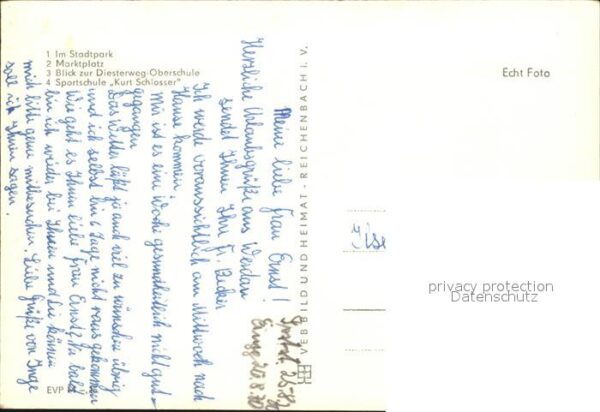 1 Im Stadtpark
2 Marktplatz
3 Blick zur Diesterweg-Oberschule
4 Sportschule „Kurt Schlosser"
Echt Foto
Meine liebe Frau Ernst!
Herzliche Urlaubsgrüße aus Werdau
sendet Ihnen Ihr Fr. Becker
Ich werde voraussichtlich am Mittwoch nach
Hause kommen
Mir ist es eine Woche gesundheitlich nicht gut
gegangen
Das Wetter läßt ja auch viel zu wünschen übrig
und ich selbst bin 6 Tage nicht raus gekommen
Wie geht es Ihnen liebe Frau Ernst? Na bald
bin ich wieder bei Ihnen und Sie können
mich bitte gern mitbesuchen. Liebe Grüße von Inge
soll ich Ihnen sagen.
VEB BILD UND HEIMAT · REICHENBACH I. V.
EVP
privacy protection
Datenschutz